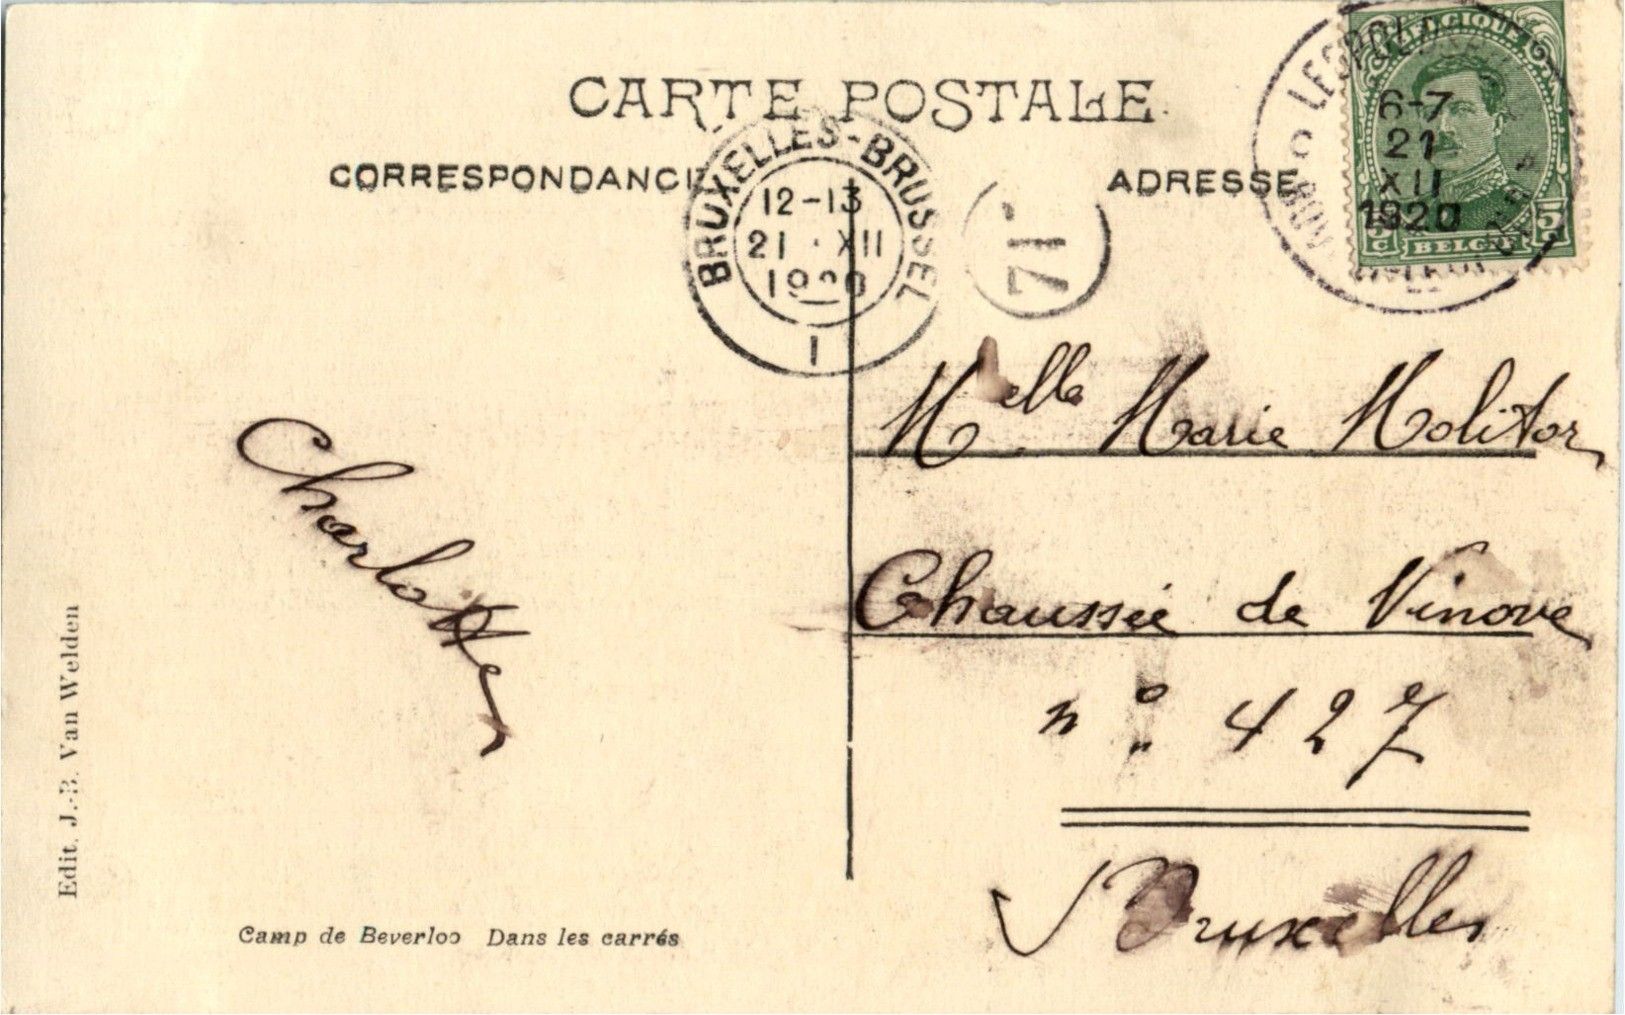 CARTE POSTALE
CORRESPONDANCE
ADRESSE
BRUXELLES-BRUSSEL
12-13
21 · XII
1920
1
71
BELGIQUE
6-7
21
XII
1920
5
c
BELGIË
5
c
Melle. Marie Molitor
Chaussée de Ninove
n° 427
Bruxelles
Charlotte
Edit. J.-B. Van Welden
Camp de Beverloo Dans les carrés